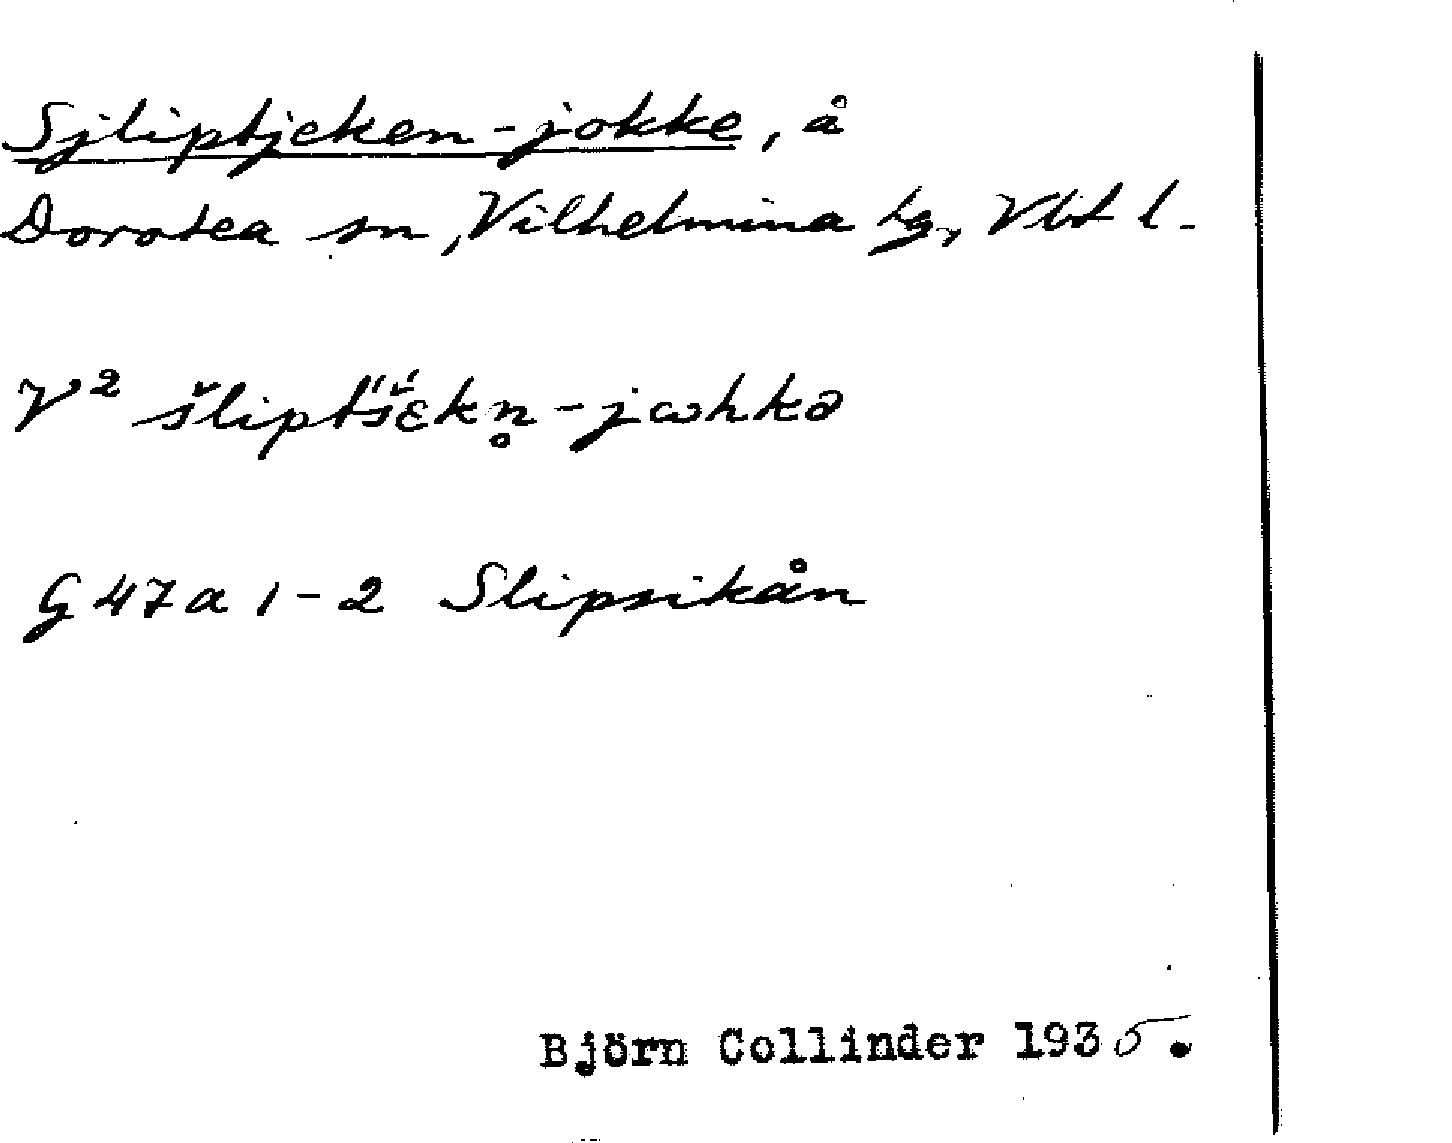 Sjliptjeken-jokke, å
Dorotea sn, Vilhelmina tg, Vbt l.
V² šliptš́ɛkn̥-jωhkə
G 47 a 1-2 Slipsikån
Björn Collinder 1935.